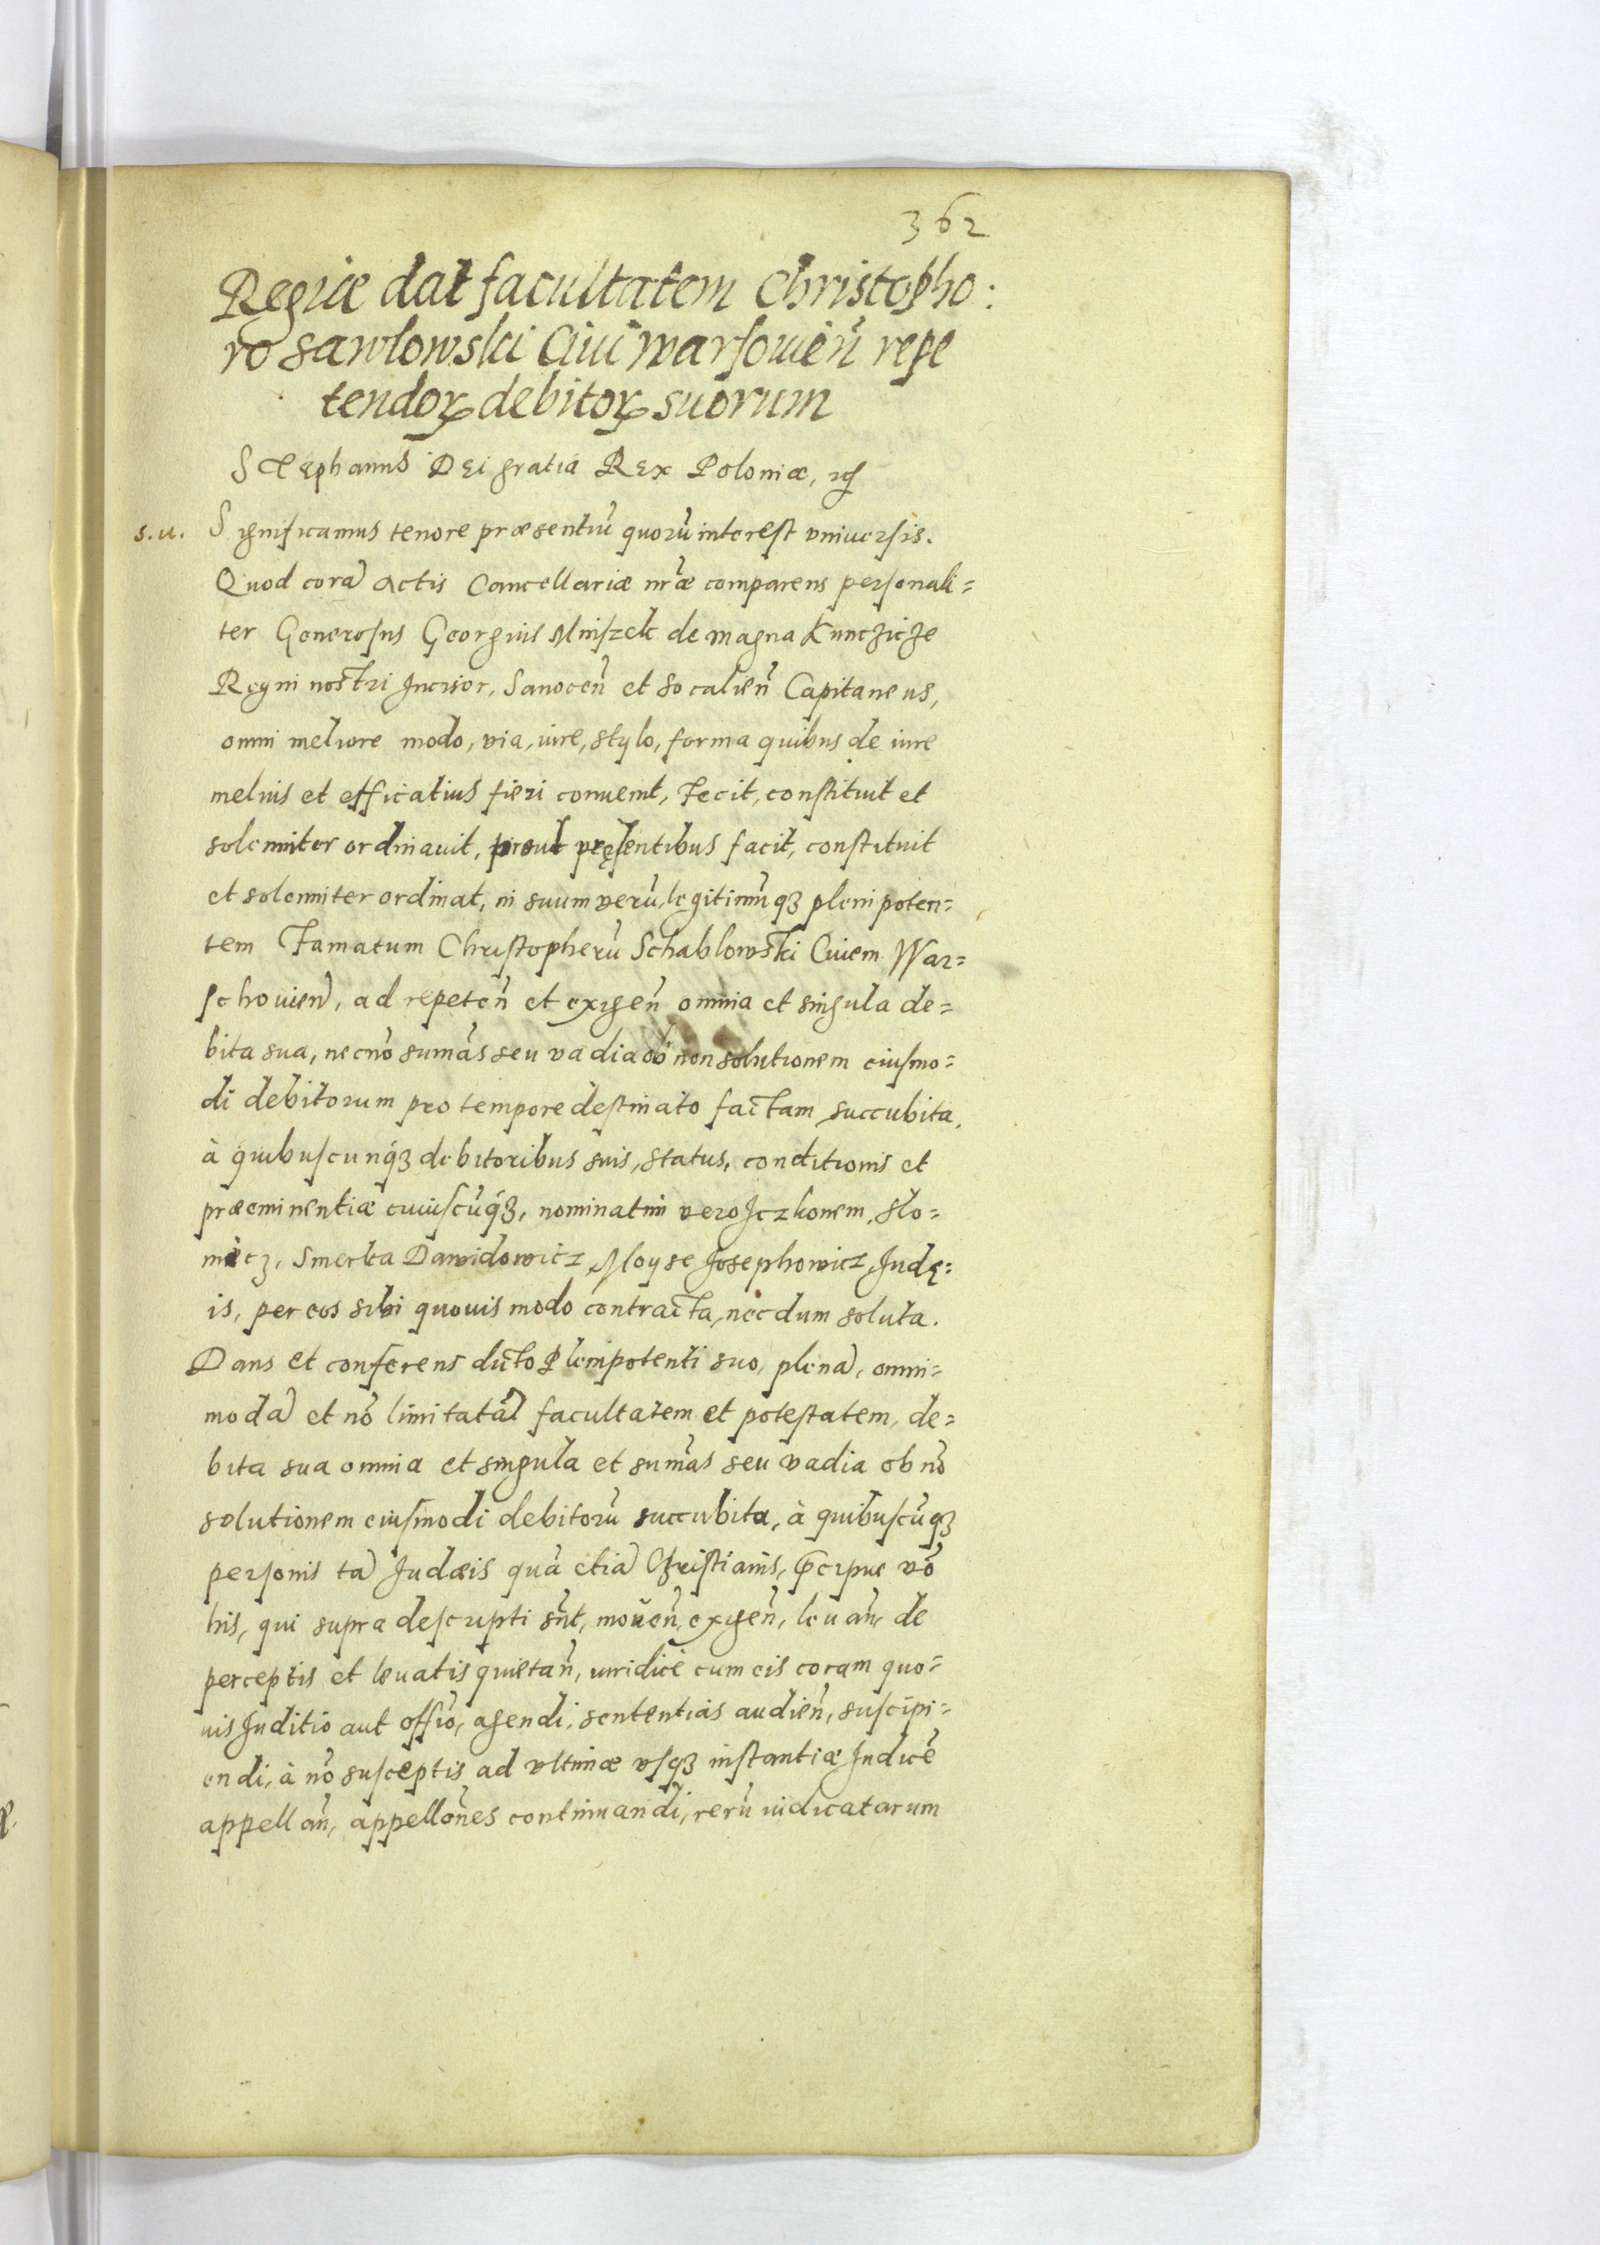 362
Regiae dat facultatem Christopho:
ro Sawlowski Ciui warsouień repe
tendoꝝ debitoꝝ suorum
Stephanus Dei gratia Rex Poloniæ, ꝛc
s.u. Significamus tenore præsentiū quorū interest vniuersis.
Quod corã Actis Cancellariæ nr̃æ comparens personali=
ter Generosus Georgius Mniszek de magna Kunczicze
Regni nostri Incisor, Sanoceń et Socalień Capitaneus,
omni meliore modo, via, iure, stylo, forma quibus de iure
melius et efficatius fieri conuenit, Fecit, constituit et
solemniter ordinauit, prout pręsentibus facit, constituit
et solemniter ordinat, in suum verū, legitimūqꝫ plenipoten=
tem Famatum Christopherū Schablowski Ciuem War=
schouień, ad repeteń et exigeń omnia et singula de=
bita sua, necnō sumās seu vadia ob non solutionem eiusmo=
di debitorum pro tempore destinato factam succubita,
à quibuscunqꝫ debitoribus suis, status, conditionis et
præeminentiæ cuiuscūqꝫ, nominatim vero Iczkonem, Slo=
micz, Smerka Dawidowicz, Moyse Josephowicz, Judę=
is, per eos sibi quouis modo contracta, necdum soluta.
Dans et conferens dicto Plenipotenti suo, plenã, omni=
modã et nō limitatā facultatem et potestatem, de=
bita sua omnia et singula et sumās seu vadia ob nō
solutionem eiusmodi debitorū succubita, à quibuscūqꝫ
personis tã Judæis quā etiã Christianis, Præcipue vō
his, qui supra descripti sūt, moneń, exigeń, leuań, de
perceptis et leuatis quietań, iuridicē cum eis coram quo=
uis Juditio aut offiō, agendi, sententias audień, suscipi=
endi, à nō susceptis ad vltimæ vsqꝫ instantiæ Judicē
appellań, appellōnes continuandi, rerū iudicatarum